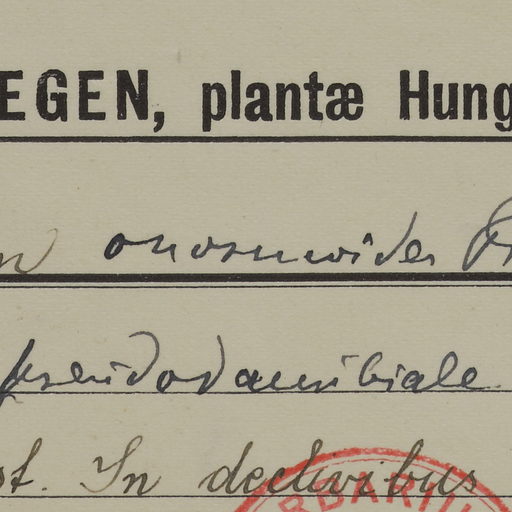 EGEN, plantæ Hung
onosmoides
pseudodanubiale
st. In declivibus
RBARIU